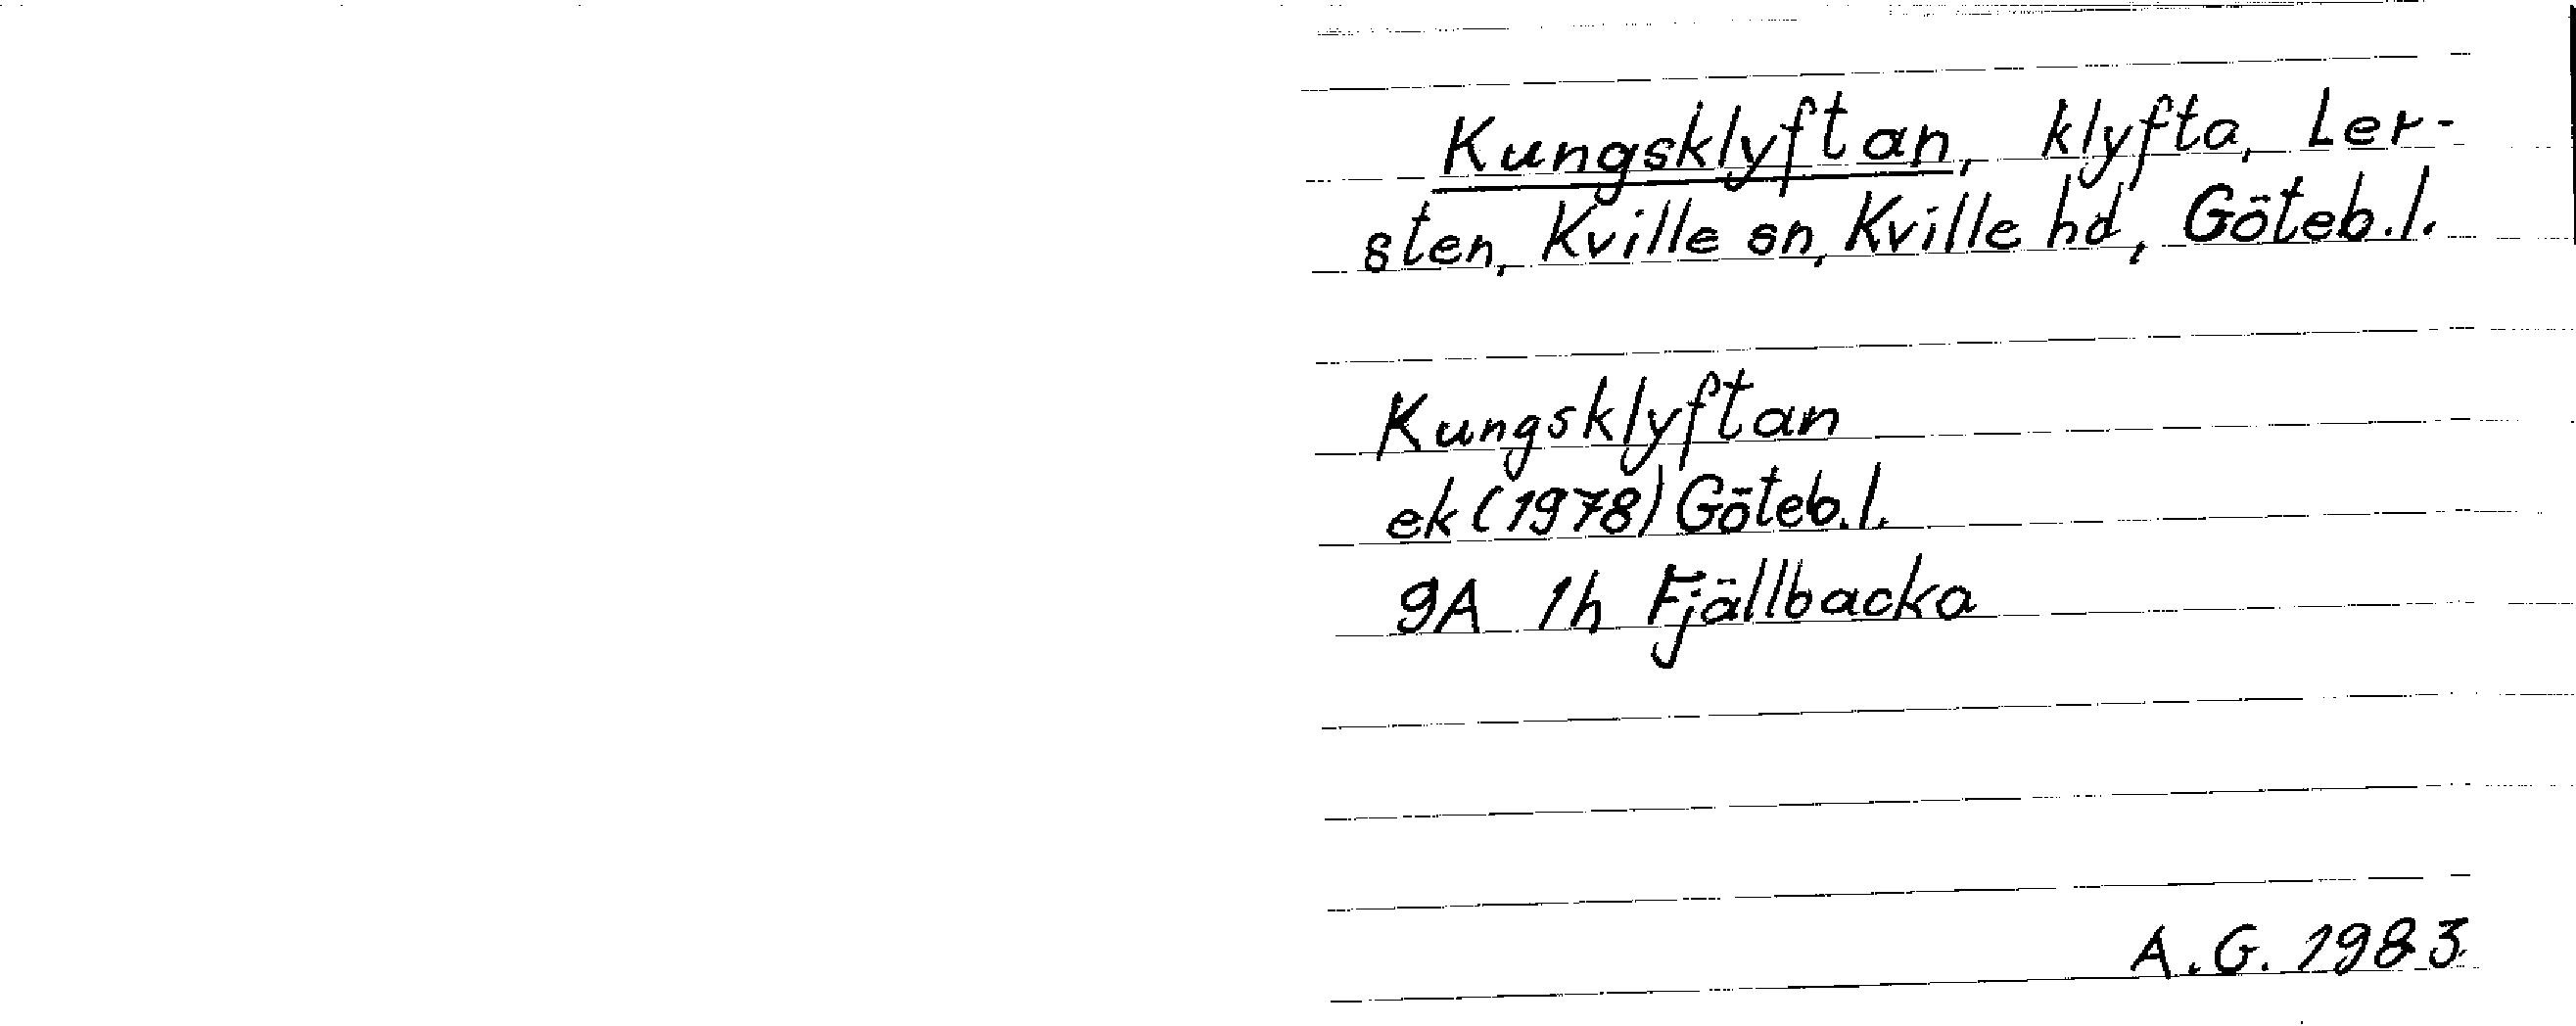 Kungsklyftan, klyfta, Ler-
sten, Kville sn, Kville hd, Göteb.l.
Kungsklyftan
ek (1978) Göteb.l.
9A 1h Fjällbacka
A.G. 1983